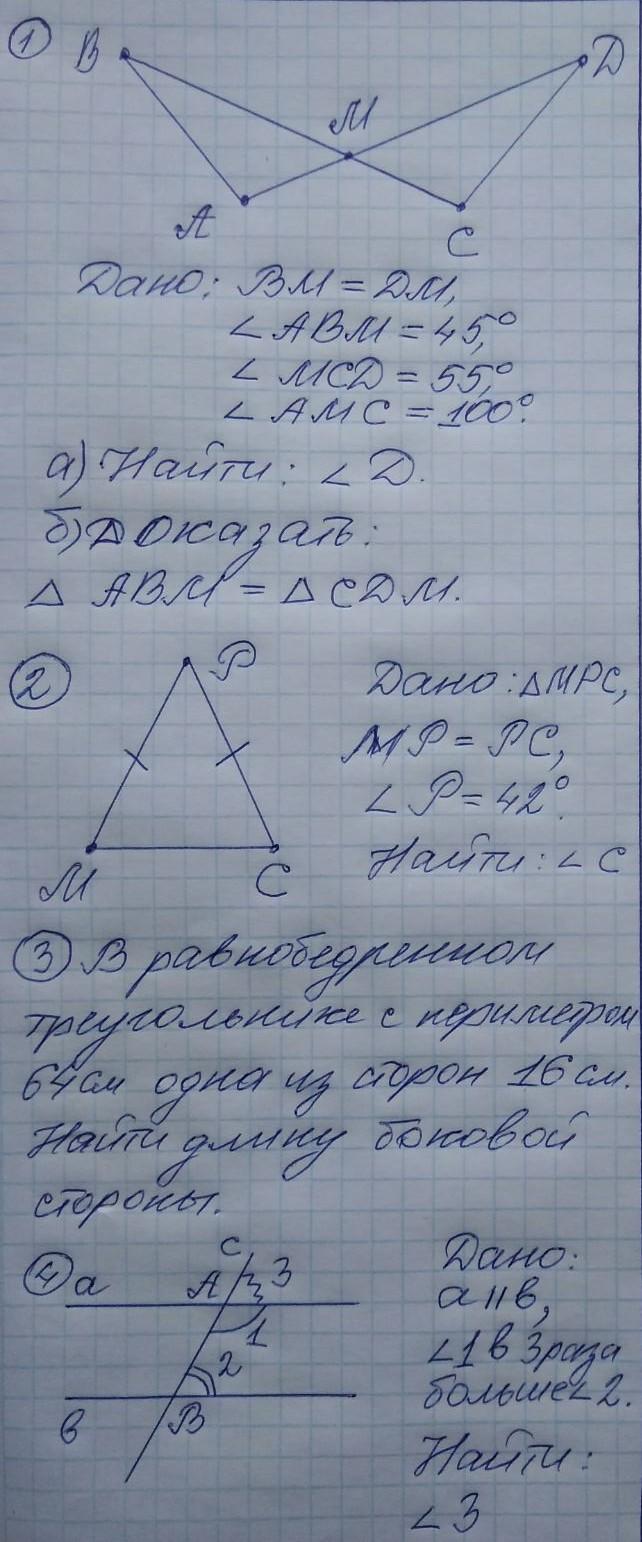 1
B
D
M
A
C
Дано: BM = DM,
∠ABM = 45°,
∠MCD = 55°,
∠AMC = 100°.
а) Найти: ∠D.
б) Доказать:
△ ABM = △ CDM.
2
P
M
C
Дано: △MPC,
MP = PC,
∠P = 42°.
Найти: ∠C
3 В равнобедренном
треугольнике с периметром
64 см одна из сторон 16 см.
Найти длину боковой
стороны.
4
a
A
c
3
1
2
в
B
Дано:
a || в,
∠1 в 3 раза
больше ∠2.
Найти:
∠3